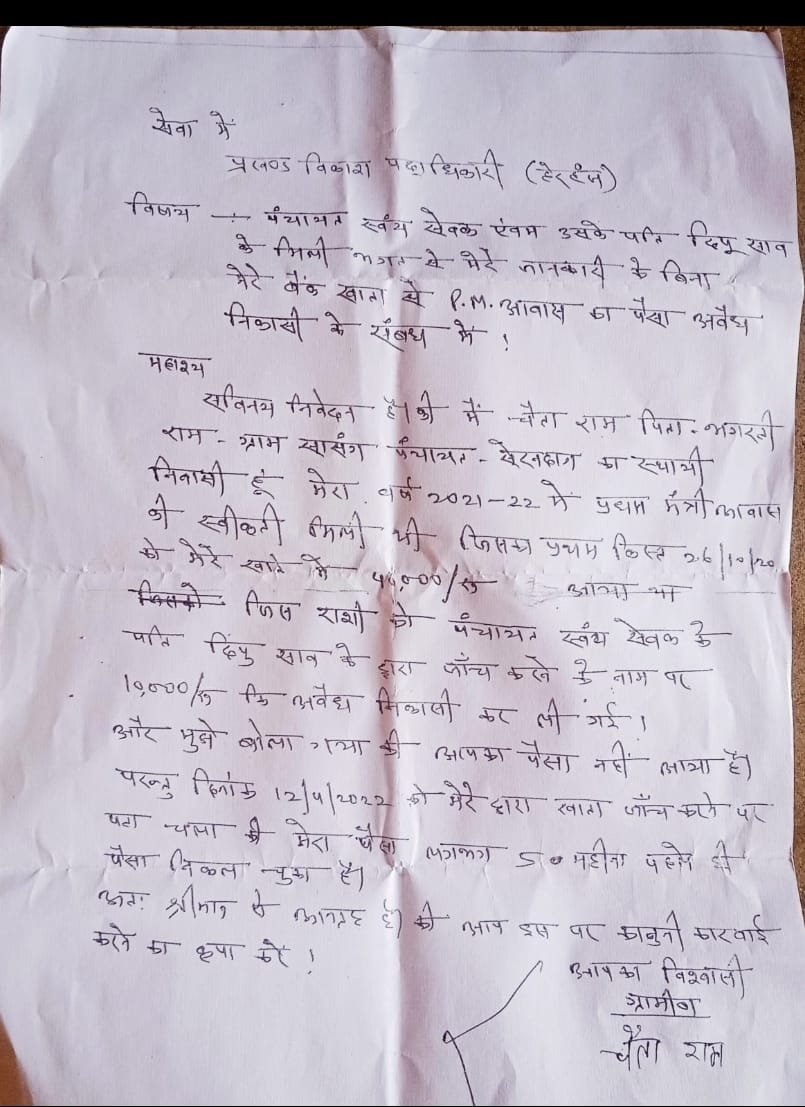 सेवा में
प्रखण्ड विकाश पदाधिकारी (हेरहंज)
विषय :- पंचायत स्वंय सेवक एंवम उसके पति दिपु साव
के मिली भगत से मेरे जानकारी के बिना
मेरे बैंक खाता से P.M. आवास का पैसा अवैध
निकासी के संबध में !
महाश्य
सविनय निवेदन है। की मैं चैता राम पिता-
राम - ग्राम सासंग पंचायत - सेरनदाग का स्थायी
निवासी हूं मेरा वर्ष 2021-22 में प्रधान मंत्री आवास
की स्वीकती मिली थी जिसका प्रथम किस्त 26/10/20
को मेरे खाते में 40,000/रु आया था
जिस राशी को पंचायत स्वंय सेवक के
पति दिपु साव के द्वारा जाँच करने के नाम पर
10,000/रु कि अवैध निकासी कर ली गई !
और मुझे बोला गया की आपका पैसा नहीं आया है।
परन्तु दिनांक 12/4/2022 को मेरे द्वारा खाता जाँच करने पर
पता चला की मेरा पैसा लगभग 5 महीना पहले ही
पैसा निकल चुका है।
अतः श्रीमान से आग्रह है। की आप इस पर कानुनी कारवाई
करने का कृपा करें !
आपका विश्वासी
ग्रामीण
चैता राम